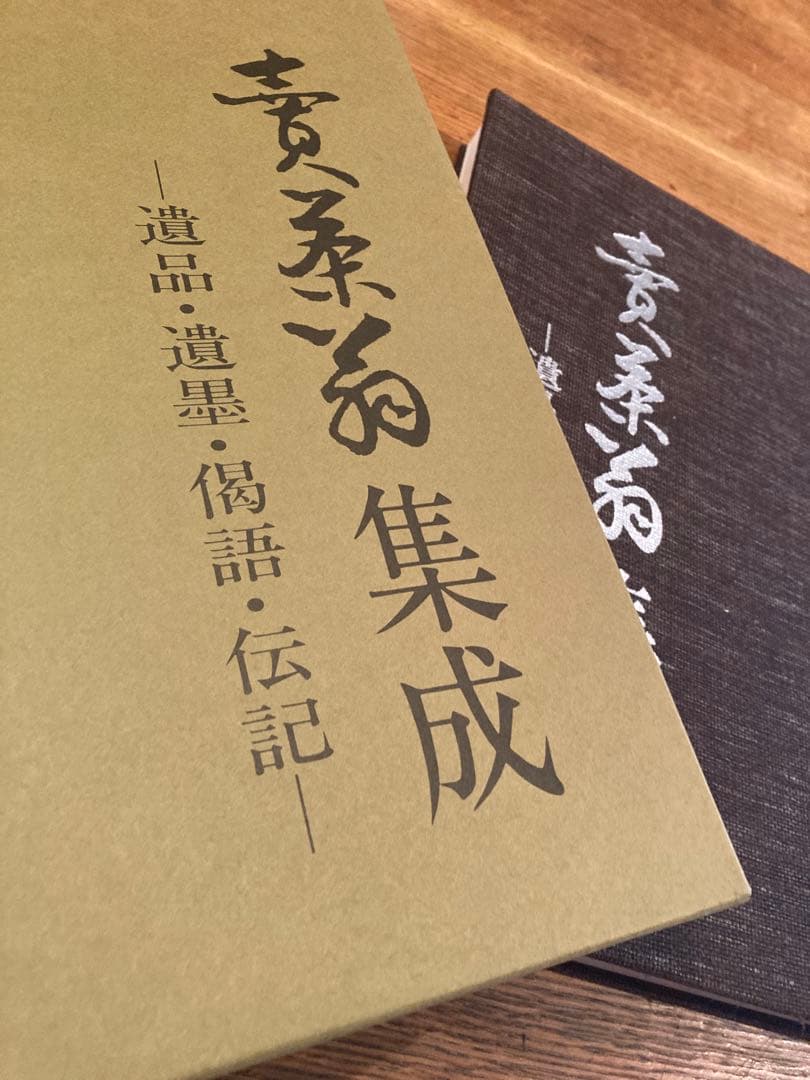 賣茶翁集成
―遺品・遺墨・偈語・伝記―
賣茶翁
―遺